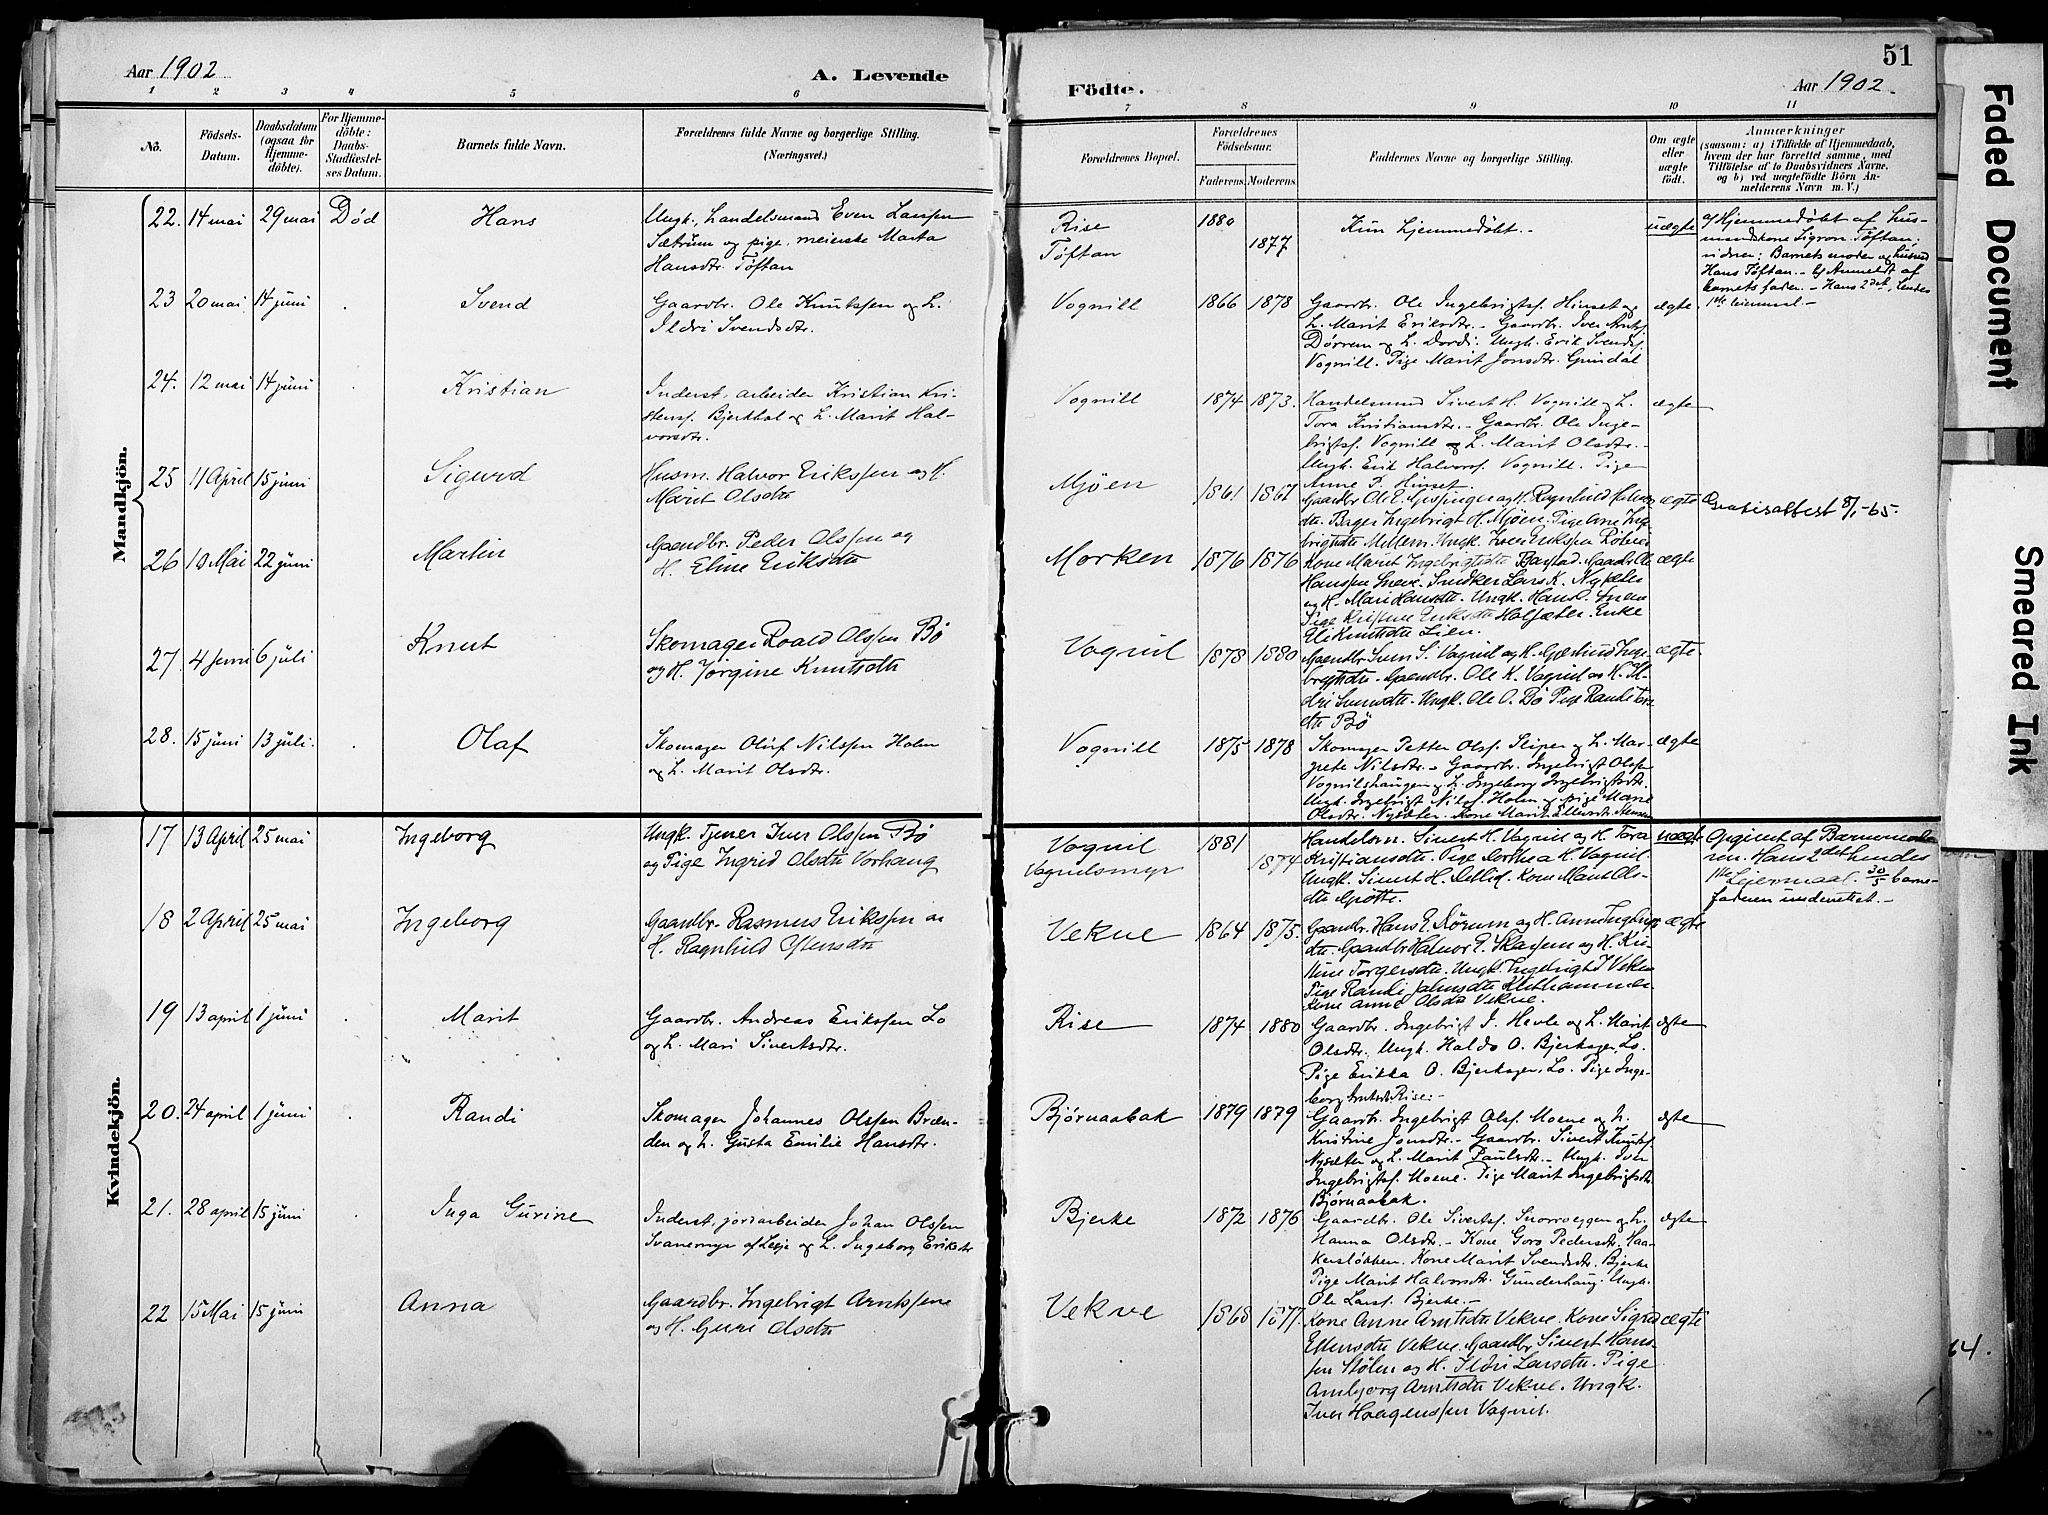 Aar 1902
A. Levende
Födte.
Aar 1902.
51
1 2 3 4 5 6 7 8 9 10 11
No.
Födsels-
Datum.
Daabsdatum
(ogsaa for
Hjemme-
döbte).
For Hjemme-
döbte:
Daabs-
Stadfæstel-
ses Datum.
Barnets fulde Navn.
Forældrenes fulde Navne og borgerlige Stilling.
(Næringsvei.)
Forældrenes Bopæl.
Forældrenes
Födselsaar.
Faderens. Moderens.
Faddernes Navne og borgerlige Stilling.
Om ægte
eller
uægte
födt.
Anmærkninger
(saasom: a) i Tilfælde af Hjemmedaab,
hvem der har forrettet samme, med
Tilföielse af to Daabsvidners Navne,
og b) ved uægtefödte Börn An-
melderens Navn m. V.)
Mandkjön.
22. 14 mai 29 mai Död Hans
Ungk., Handelsmand Even Larssen
Sætrum og pige, meierske Marta
Hansdtr. Töftan
Rise
Töftan
1880
1877
Kun hjemmedöbt.-
uægte
a/ Hjemmedöbt af hus-
mandskone Sigron Töftan;
vidner: Barnets moder og
Hans Töftan.- b/ Anmeldt af
barnets fader.- Hans 2det, hendes
1ste leiermaal.-
23 20 mai 14 juni . Svend
Gaardbr. Ole Knutssen og h.
Ildri Svendsdtr.
Vognill
1866 1878
Gaardbr. Ole Ingebrigtsf. Hinset og
h. Marit Eriksdtr.- Gaardbr. Iver Arntsf.
Dörrem og h. Dordi. Ungk. Erik Svendsf.
Vognill. Pige Marit Jonsdtr. Grindal
ægte
24. 12 mai 14 juni . Kristian
Inderst, arbeider Kristian Kri-
stenssf. Bjerkhol og h. Marit Hal-
vorsdtr.
Vognill
1874 1873.
Handelsmand Sivert H. Vognill og h.
Tora Kristiansdtr.- Gaardbr. Ole Inge-
brigtsf. Vognill og h. Marit Olsdtr.-
Ungk. Erik Halvorsf. Vognill. Pige
Anne P. Hinset
ægte
25 11 April 15 juni Sigurd
Husm. Halvor Erikssen og H.
Marit Olsdtr
Mjöen
1861 1867
Gaardbr Ole E. Gissinger og H. Ragnhild
dtr. Bager Ingebrigt H. Mjöen. Pige Ane Inge-
brigtsdtr Mellem. Ungk. Iver Erikssen
ægte
Gratisattest 8/1-65.
26 10 Mai 22 juni Martin
Gaardbr. Peder Olssen og
H. Eline Eriksdtr
Morken
1876 1876
Kone Marit Ingebrigtsdtr. Gaardb. Ole
Hanssen Sneve. Snedker Lars K. Nysæter
og H. Mari Hansdtr. Ungk. Hans O. Snem
Pige Kristine Eriksdtr Halsæter. Enke
Eli Knutsdtr Lien.
ægte
27. 4 Juni 6 juli Knut
Skomager Roald Olssen Bö
og H. Jörgine Knutsdtr
Vognil
1878 1880
Gaardbr Sven S. Vognil og H. Gjertrud Inge-
brigtsdtr. Gaardbr. Ole K. Vognil og H. Il-
dri Svensdtr. Ungk. Ole O. Bö Pige Randi Tore
dtr Bö
ægte
28. 15 juni 13 juli. . Olaf
Skomager Oluf Nilssen Holm
og h. Marit Olsdtr.
Vognill
1875 1878
Skomager Petter Olsf. Stiper og h. Mar-
grete Nilsdtr.- Gaardbr. Ingebrigt Olssen
Vognilshaugen og h. Ingeborg Ingebrigtsdtr.
Ungk. Ingebrigt Nilsf. Holm og pige Marie
Olsdtr. Nysæter. Kone Marit
ægte
Kvindekjön.
17 13 April 25 mai Ingeborg
Ungk. Tjener Iver Olssen Bö
og Pige Ingrid Olsdtr Vorhaug
Vognil
Vognilsmyr
1881
1874
Handelsm. Sivert H. Vognil og H. Tora
Kristiansdtr. Pige Dorthea H. Vognil.
Ungk. Sivert H. Detlid. Kone Marit Ols-
dtr Grötte.
uægte
Opgivet af Barnemode-
ren. Hans 2det hendes
1ste Leiermaal. 30/5 barne-
faderen underrettet.-
18 2 April 25 mai Ingeborg
Gaardbr. Rasmus Erikssen og
H. Ragnhild Estensdtr
Vekve
1864 1875.
Gaardbr. Hans E. Rörum og H. Anne Ingebrigts
dtr. Gaardbr Halvor E. og H. Kri-
stine Torgersdtr. Ungk. Ingebrigt J Vekve
Pige Randi Klethammer
Kone Anne Olsdtr Vekve.
ægte
19 13 april 1 juni . Marit
Gaardbr. Andreas Erikssen Lo
og h. Mari Sivertsdtr.
Rise
1874 1880
Gaardbr. Ingebrigt I. Hevle og h. Marit
Olsdtr. Ungk. Haldo O. Bjerkager, Lo.
Pige Erikka O. Bjerkager, Lo. Pige Inge-
borg Arntsdtr Rise.-
ægte
20. 24 april 1 juni . Randi
Skomager Johannes Olssen Bræn-
den og h. Gusta Emilie Hansdtr.
Björnaabak
1879 1879
Gaardbr. Ingebrigt Olsf. Moene og h.
Kristine Jonsdtr.- Gaardbr. Sivert Knutsf.
Nysæter og h. Marit Paulsdtr.- Ungk. Iver
Ingebrigtsf. Moene. Pige Marit Ingebrigtsdtr.
Björnaabak.
ægte
21. 28 april 15 juni . Inga Gurine
Inderst, jordarbeider Johan Olssen
Svanemyr af Lesje og h. Ingeborg Eriksdtr
Bjerke
1872 1876
Gaardbr. Ole Sivertsf. Snoevoeggen og h.
Hanna Olsdtr.- Kone Goro Pedersdtr. Haa-
kerslöbben. Kone Marit Svendsdtr. Bjerke
Pige Marit Halvorsdtr. Gunderhaug. Ungk.
Ole Larsf. Bjerke.-
ægte
22 15 Mai 15 juni Anna
Gaardbr. Ingebrigt Arntssen
og H. Guri Olsdtr
Vekve
1868 1877.
Kone Anne Arntsdtr Vekve. Kone Sigrid
Ellensdtr Vekve. Gaardbr Sivert Hans-
sen Stölen og H. Ildri Larsdtr. Pige
Ambjorg Arntsdtr Vekve. Ungk.
Iver Haagenssen Vognil.
ægte
64.
Faded Document
Smeared Ink